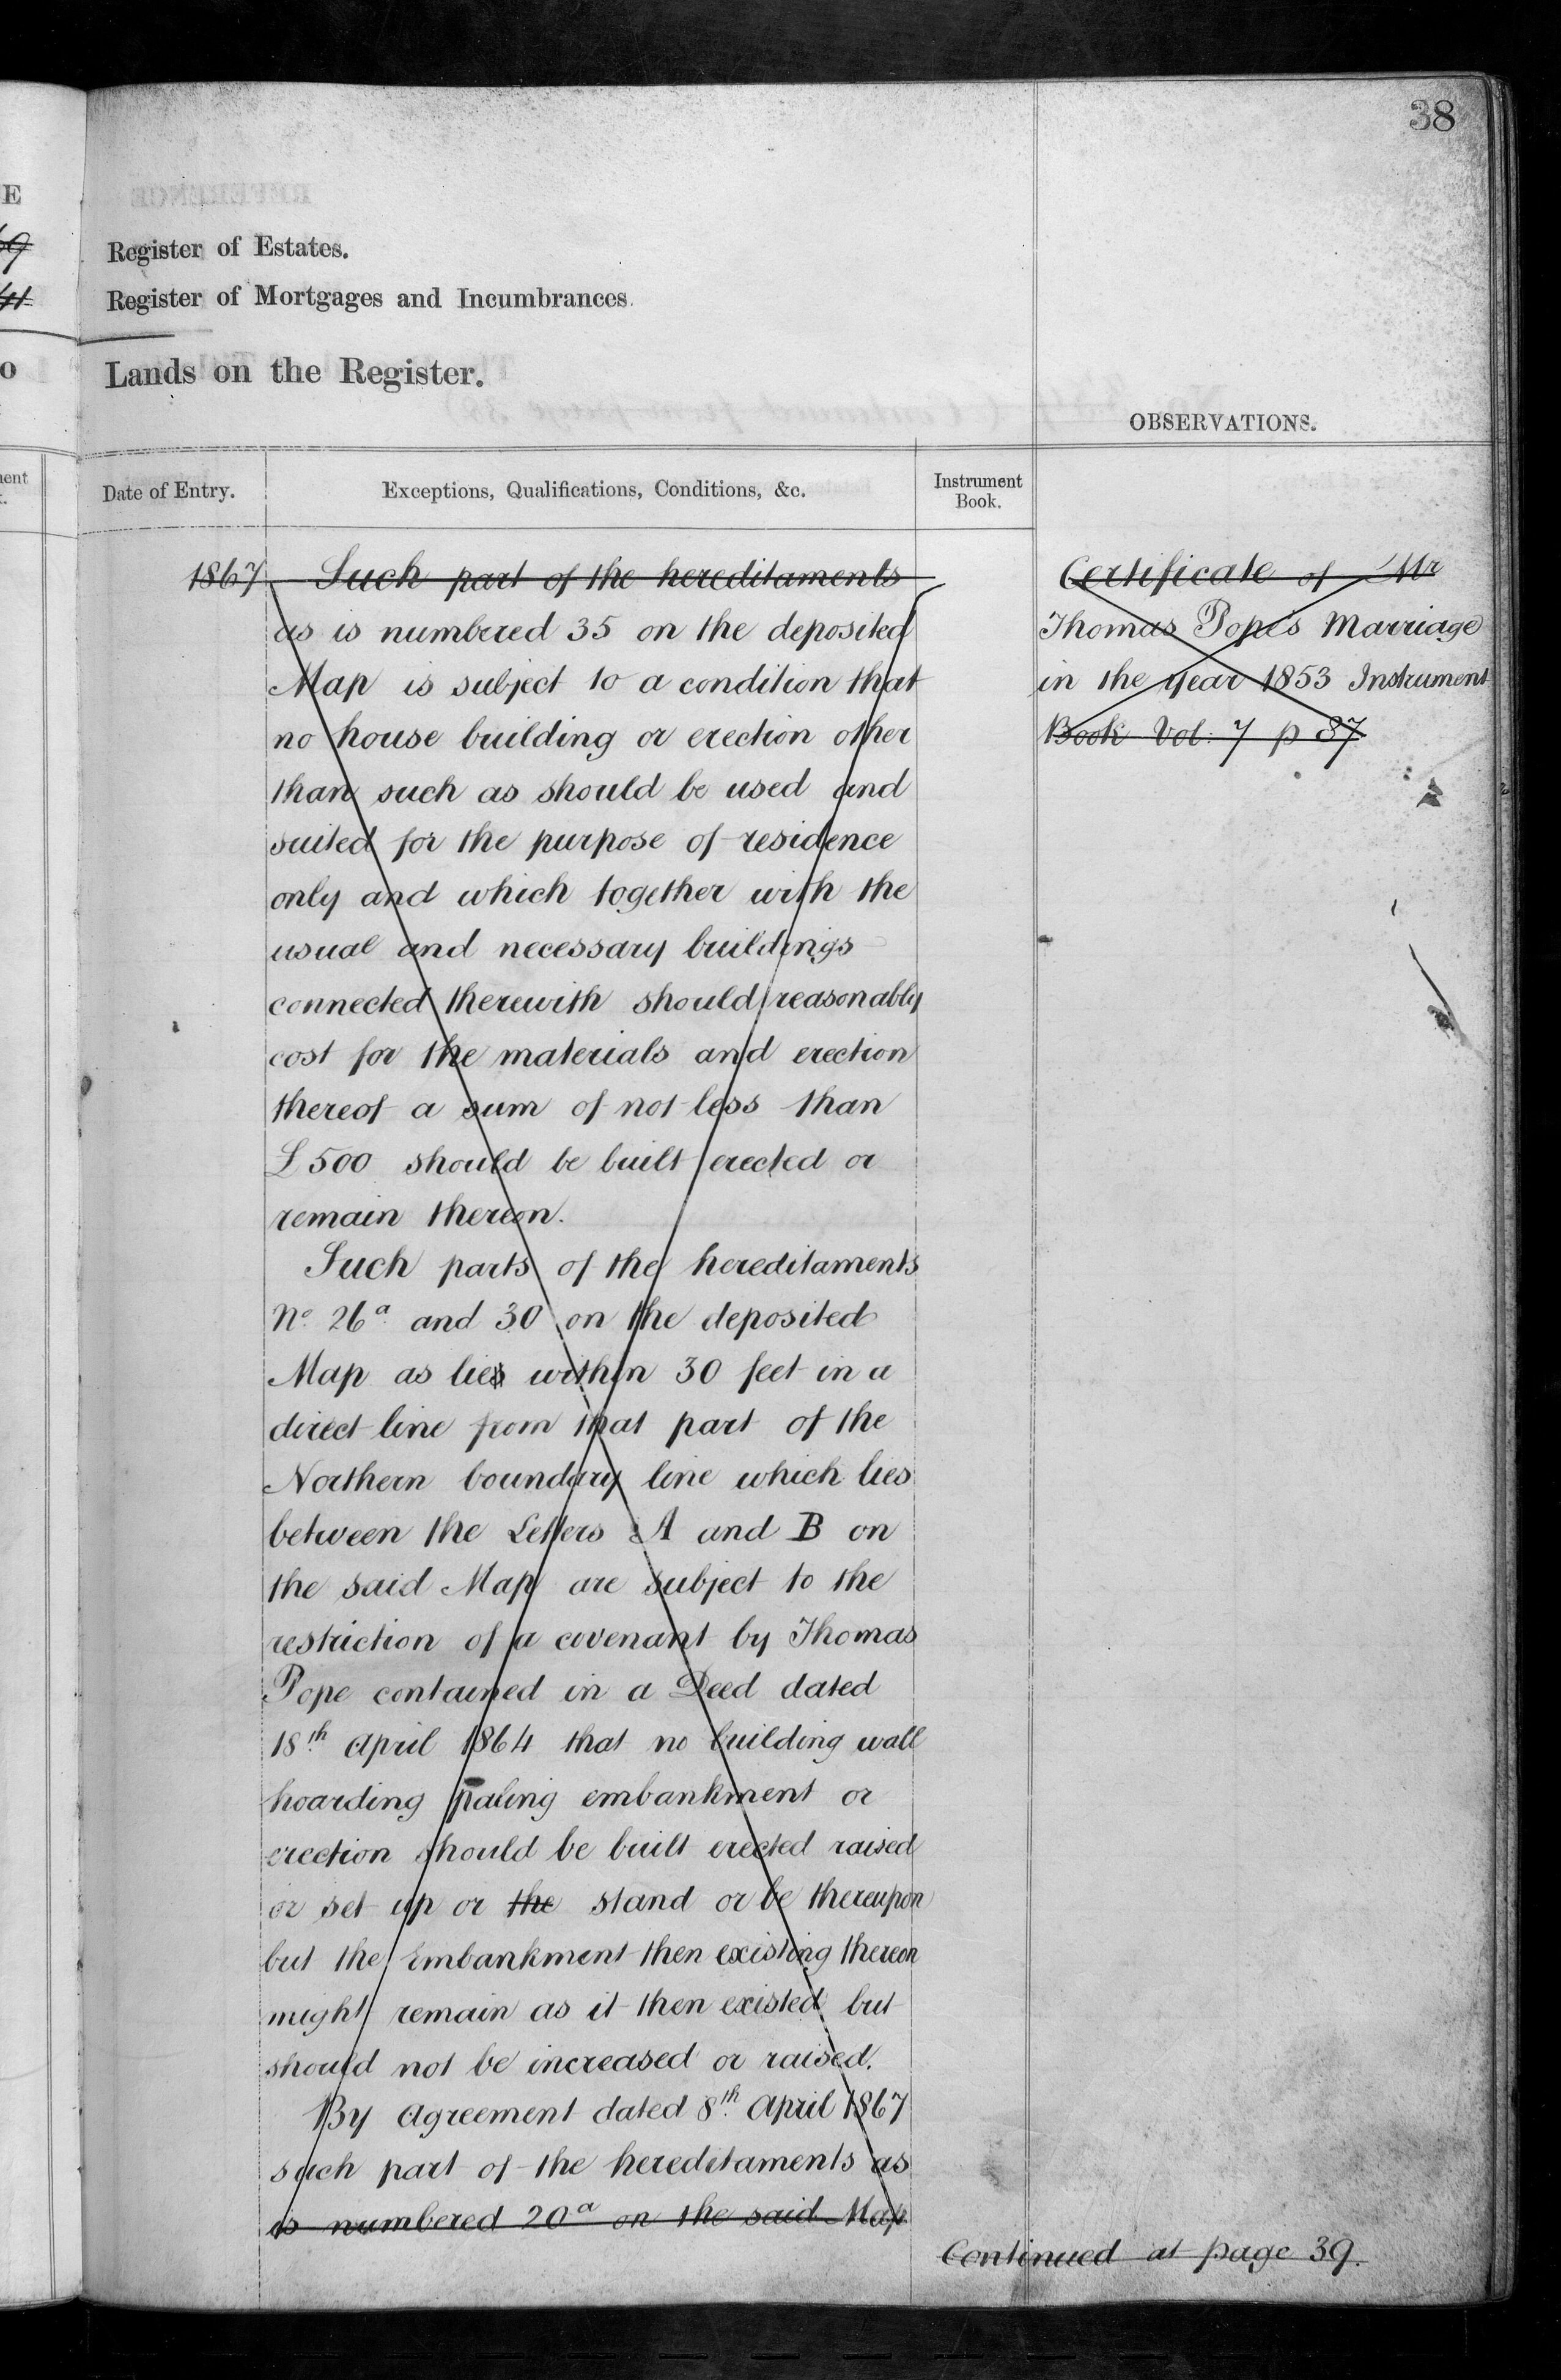 38
Register of Estates.
Register of Mortgages and Incumbrances.
Lands on the Register.
OBSERVATIONS.
Date of Entry.
Exceptions, Qualifications, Conditions, &c.
Instrument
Book.
1867 Such part of the hereditaments
as is numbered 35 on the deposited
Map is subject to a condition that
no house building or erection other
than such as should be used and
suited for the purpose of residence
only and which together with the
usual and necessary buildings
connected therewith should reasonably
cost for the materials and erection
thereof a sum of not less than
£500 should be built erected or
remain thereon.
Such parts of the hereditaments
No. 26a and 30 on the deposited
Map as lies within 30 feet in a
direct line from that part of the
Northern boundary line which lies
between the Letters A and B on
the said Map are subject to the
restriction of a covenant by Thomas
Pope contained in a Deed dated
18th April 1864 that no building wall
hoarding paling embankment or
erection should be built erected raised
or set up or the stand or be thereupon
but the Embankment then existing thereon
might remain as it then existed but
should not be increased or raised.
By Agreement dated 8th April 1867
such part of the hereditaments as
is numbered 20a on the said Map
Certificate of Mr
Thomas Pope's Marriage
in the year 1853 Instrument
Book Vol. 7 p 37
Continued at page 39.
E
69
41
o